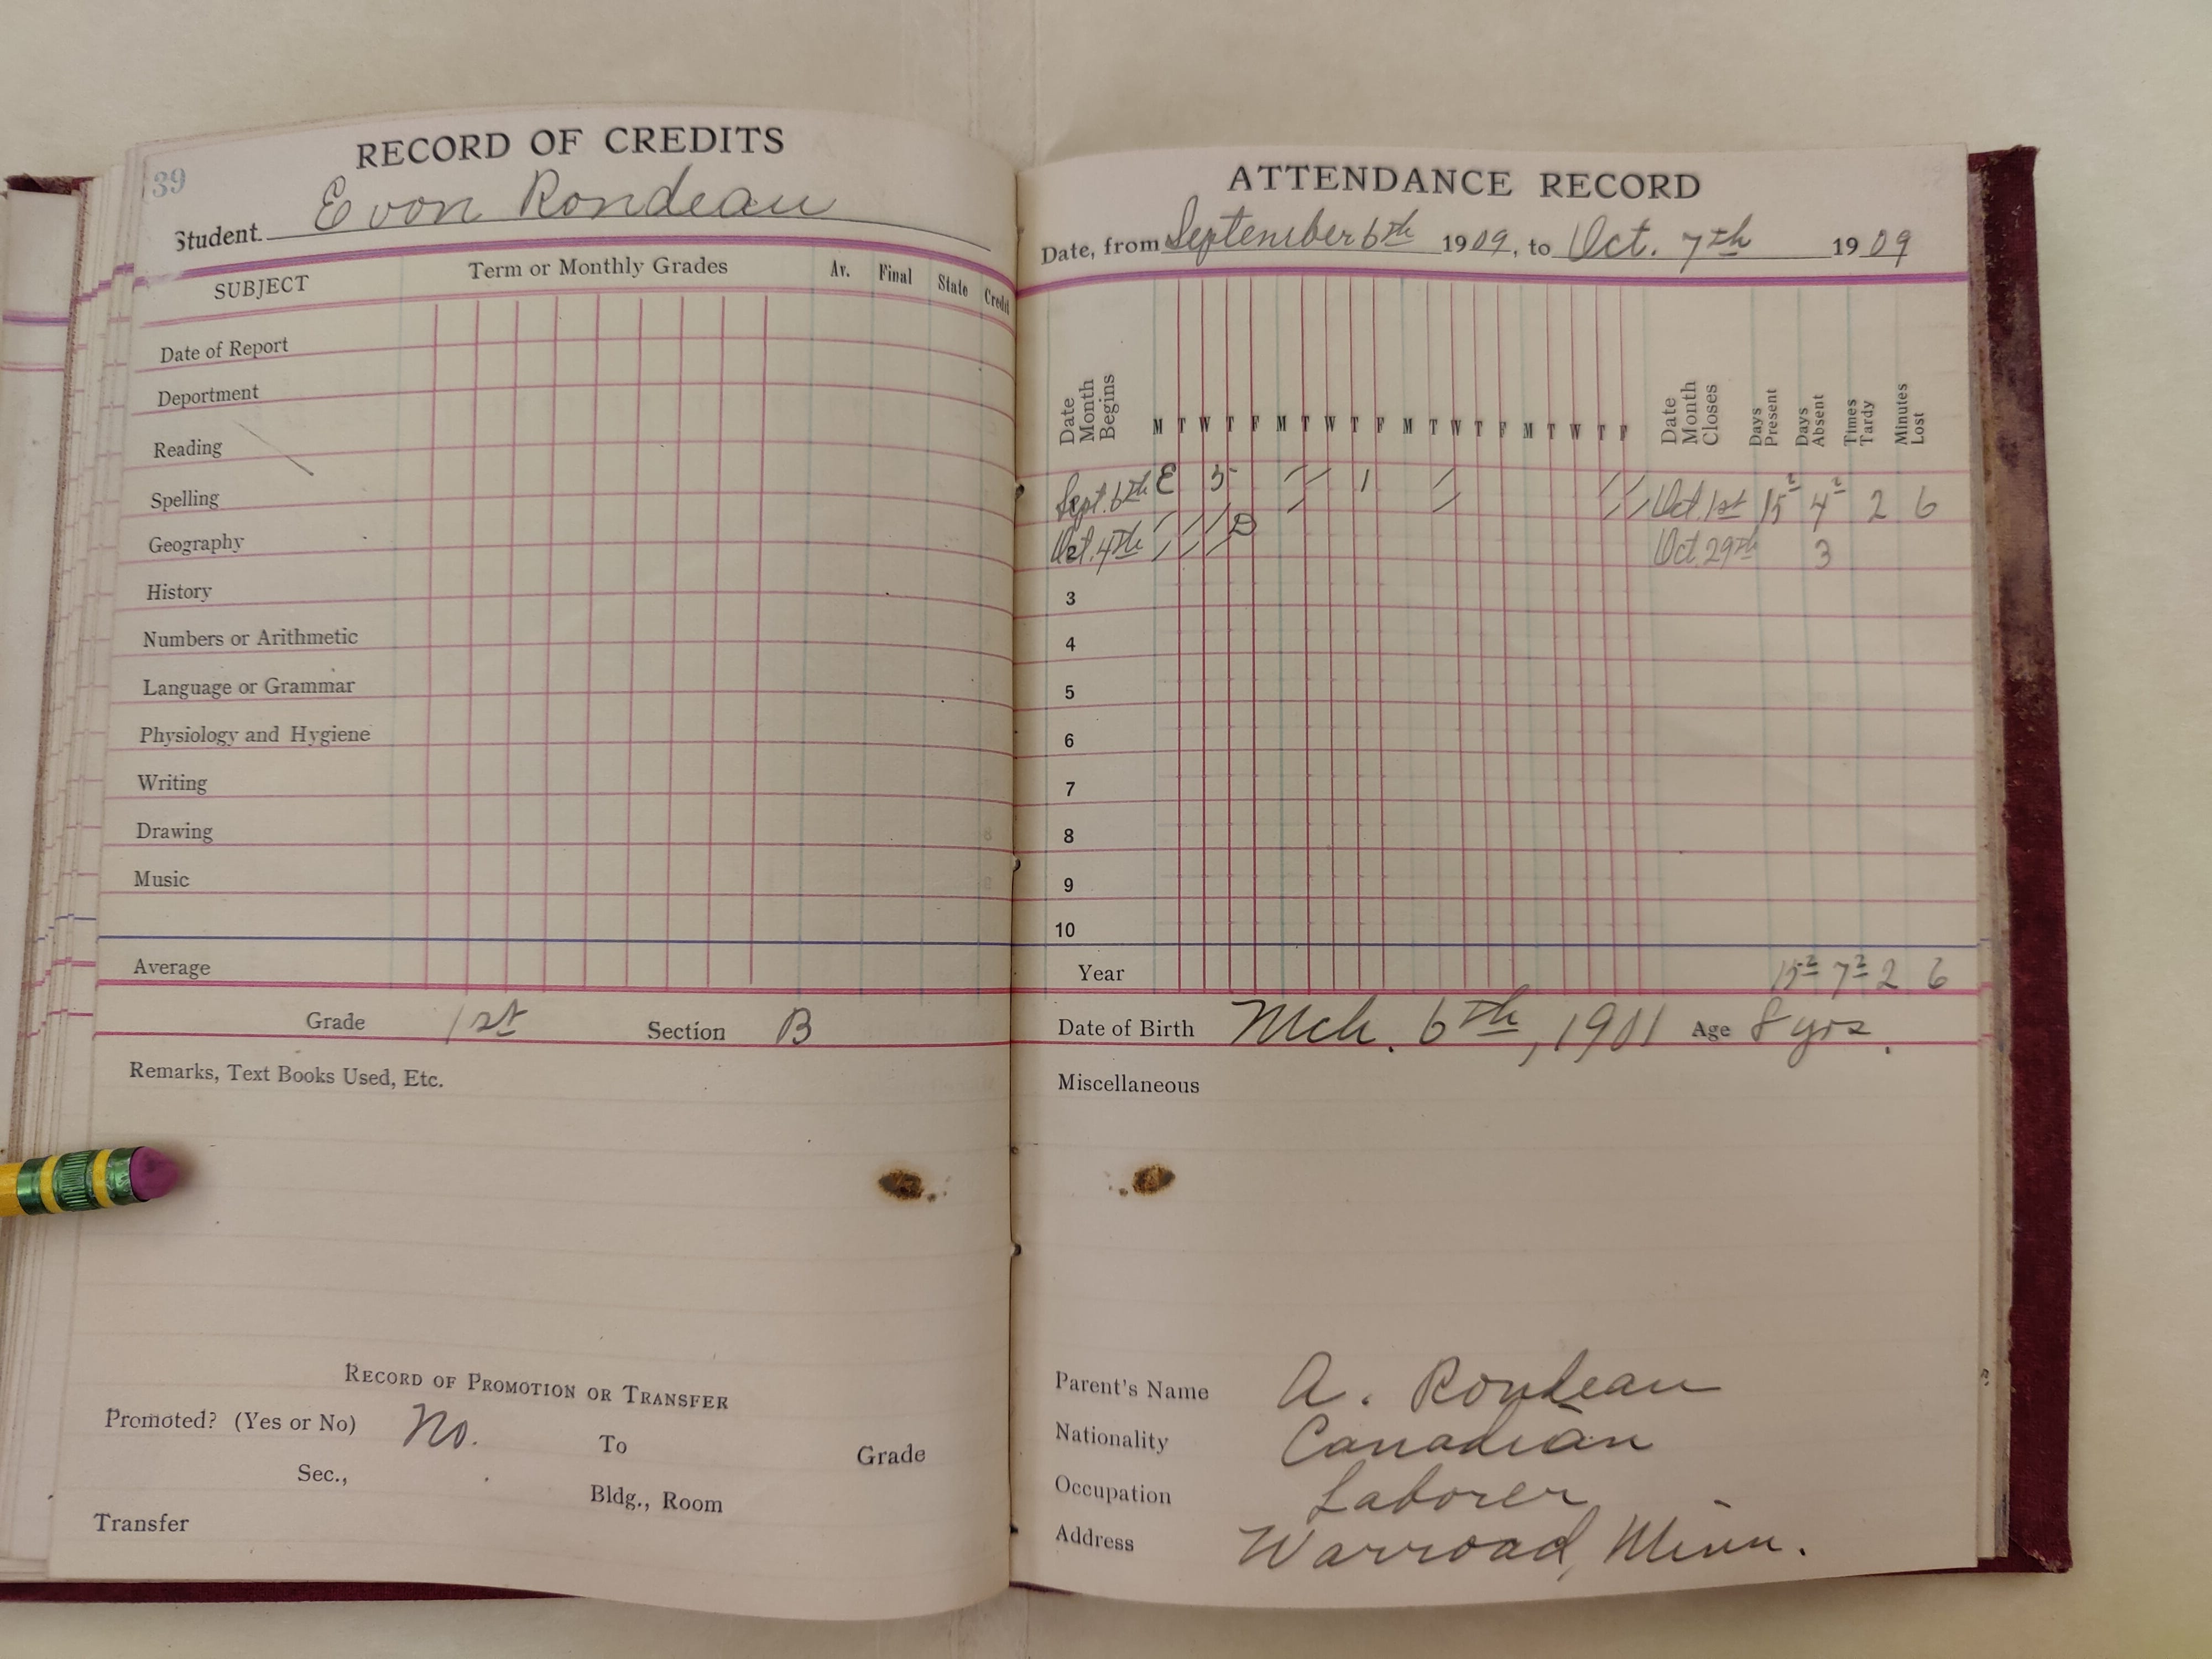 39
RECORD OF CREDITS
Student Evon Rondeau
SUBJECT Term or Monthly Grades Av. Final State Credit
Date of Report
Deportment
Reading
Spelling
Geography
History
Numbers or Arithmetic
Language or Grammar
Physiology and Hygiene
Writing
Drawing
Music
Average
Grade 1st Section B
Remarks, Text Books Used, Etc.
RECORD OF PROMOTION OR TRANSFER
Promoted? (Yes or No) No. To Grade
Sec., Bldg., Room
Transfer
ATTENDANCE RECORD
Date, from September 6th 1909, to Oct. 7th 1909
Date Month Begins M T W T F M T W T F M T W T F M T W T F Date Month Closes Days Present Days Absent Times Tardy Minutes Lost
Sept. 6th E 5 1 Oct. 1st 15 2 4 2 2 6
Oct. 4th D Oct. 29th 3
3
4
5
6
7
8
9
10
Year 15 2 7 2 2 6
Date of Birth Mch. 6th, 1901 Age 8 yrs.
Miscellaneous
Parent's Name A. Rondeau
Nationality Canadian
Occupation Laborer
Address Warroad, Minn.